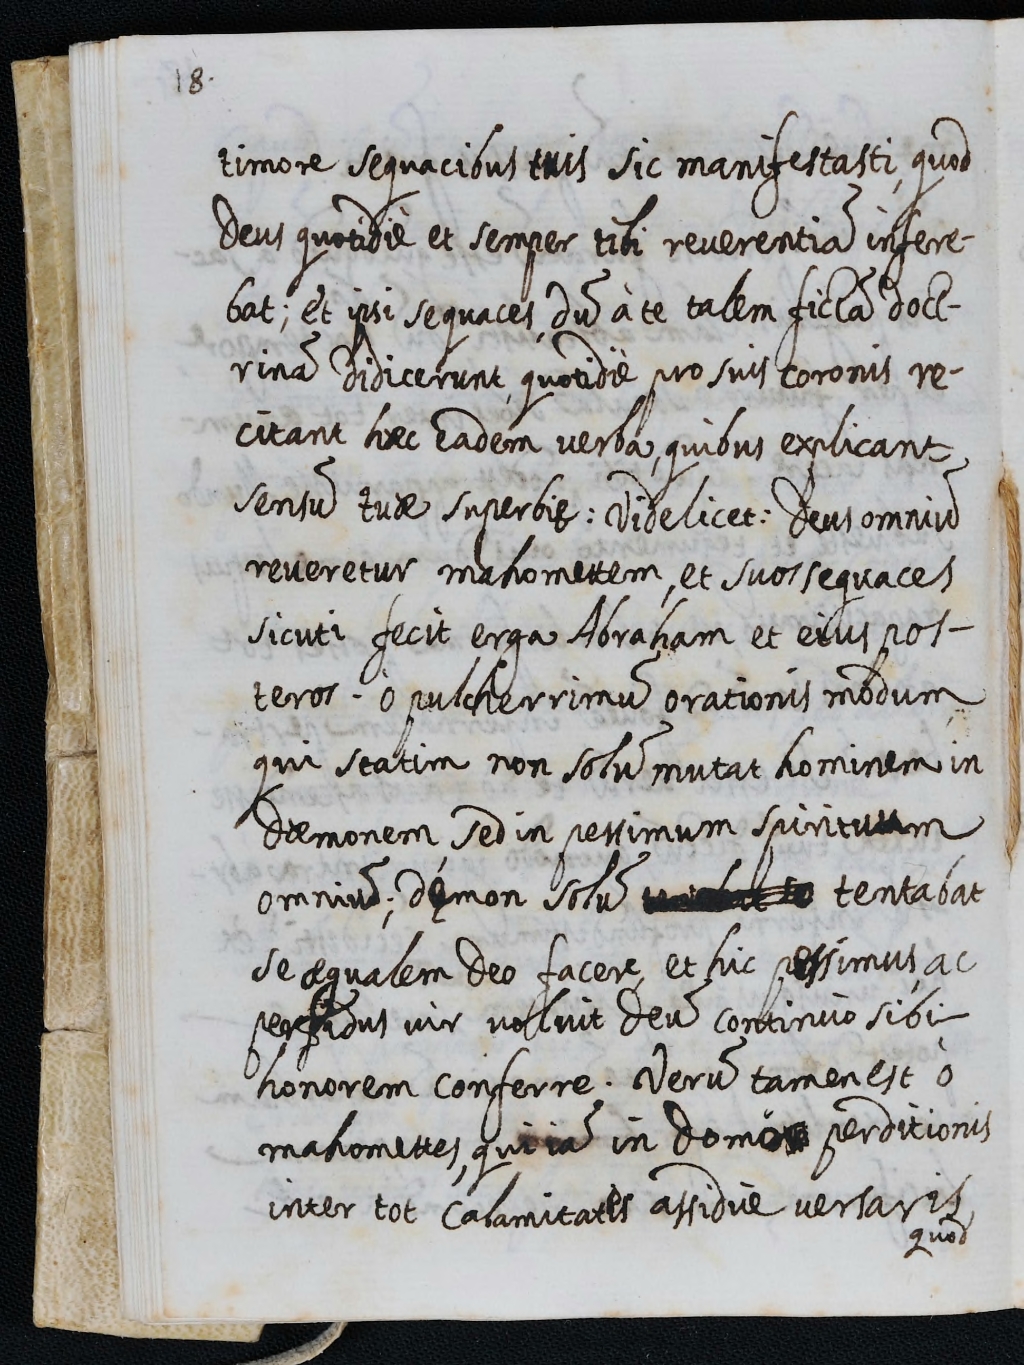 18.
timore sequacibus tuis sic manifestasti, quod
Deus quotidiè et semper tibi reverentiā infere-
bat; et ipsi sequaces, dū à te talem fictā doct-
rinā didicerunt, quotidiè pro suis coronis re-
citant hæc eadem verba, quibus explicant
sensū tuæ superbię: Videlicet: Deus omniū
reveretur mahomettem, et suos sequaces
sicuti fecit erga Abraham et eius pos-
teros. ò pulcherrimū orationis modum,
qui statim non solū mutat hominem in
dæmonem, sed in pessimum spirituum
omniū; dęmon solū tentabat
se æqualem Deo facere, et hic pessimus, ac
perfidus vir voluit Deū continuo sibi
honorem conferre. Verū tamen est ò
mahomettes, qui iā in domo perditionis
inter tot calamitates assiduè versaris,
quod